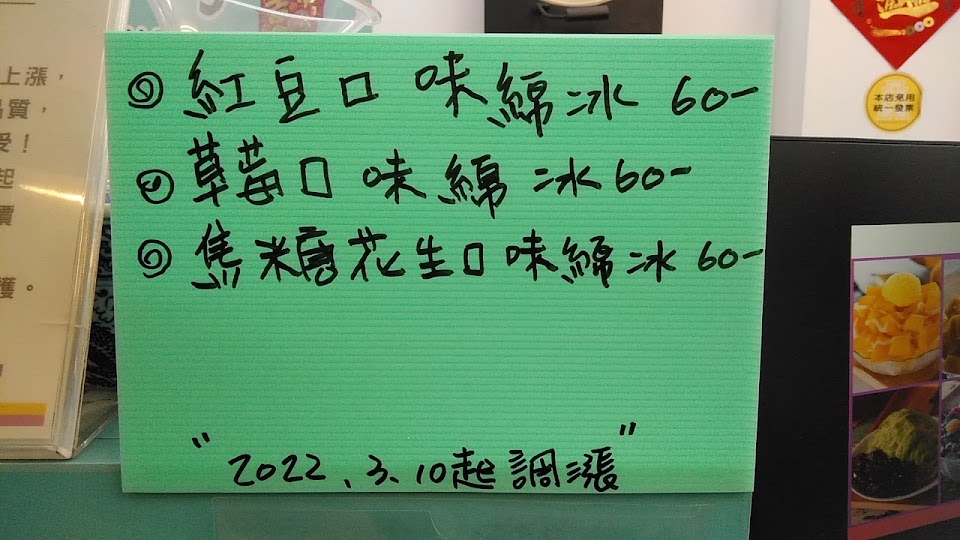 ◎ 紅豆口味綿冰 60-
◎ 草莓口味綿冰 60-
◎ 焦糖花生口味綿冰 60-
"2022、3、10起調漲"
上漲，
品質，
受！
起
價
護。
本店免用
統一發票